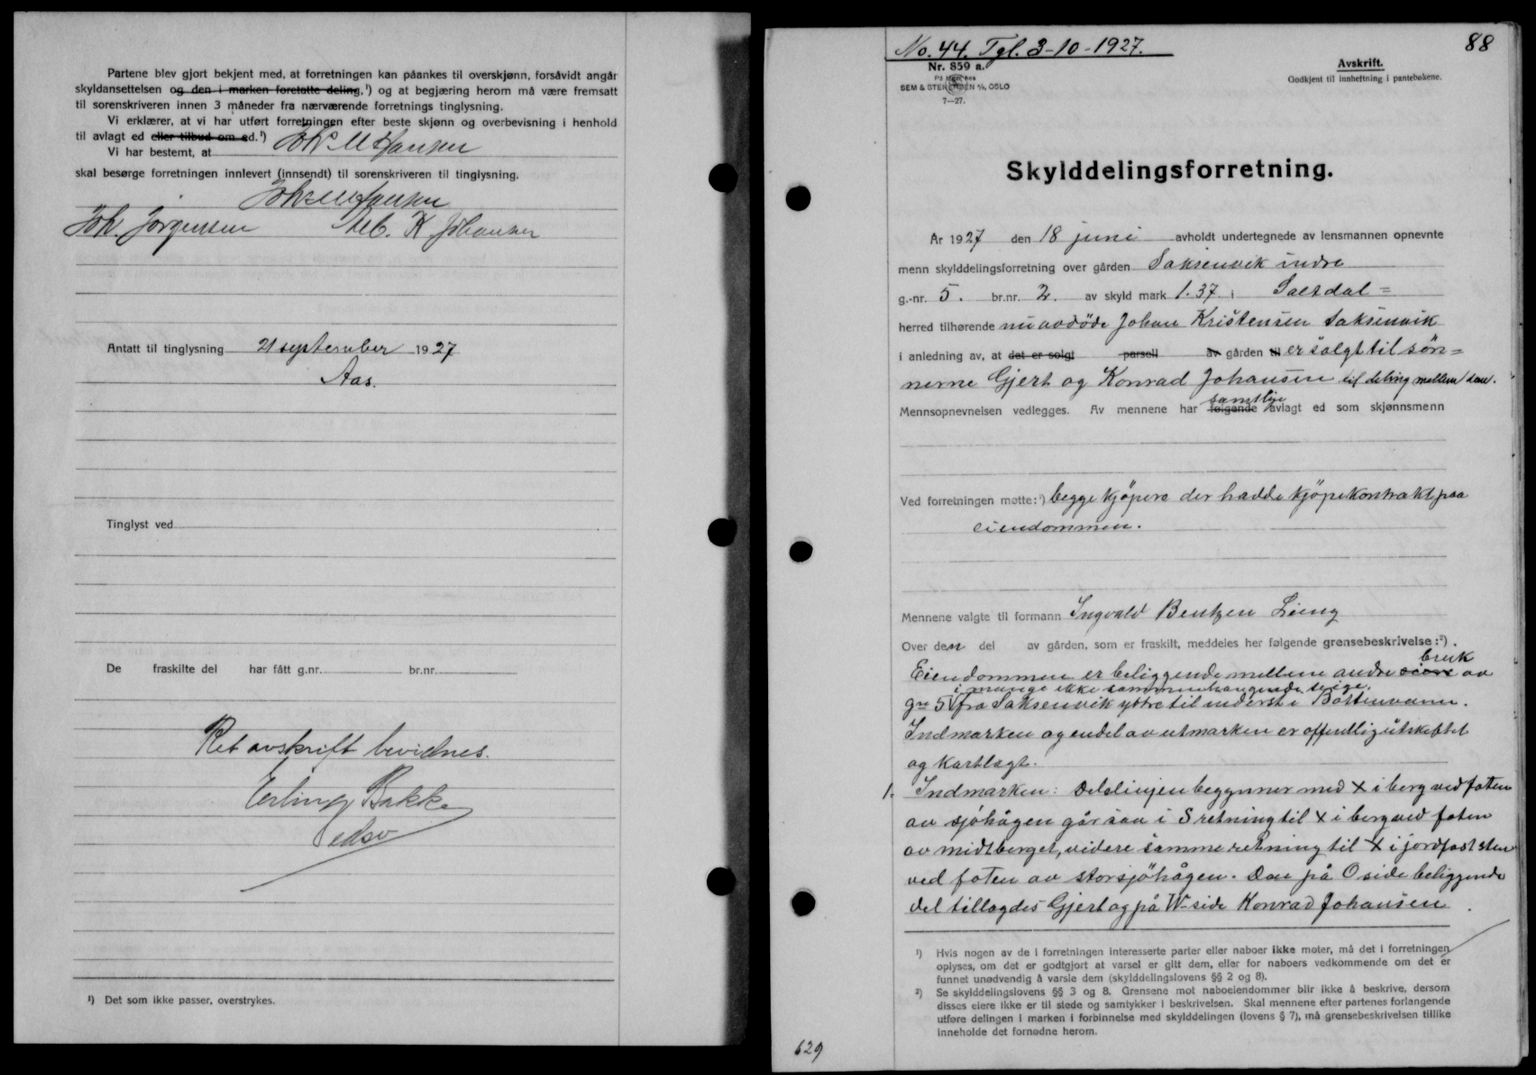 Partene blev gjort bekjent med, at forretningen kan påankes til overskjønn, forsåvidt angår
skyldansettelsen og den i marken foretatte deling,¹) og at begjæring herom må være fremsatt
til sorenskriveren innen 3 måneder fra nærværende forretnings tinglysning.
Vi erklærer, at vi har utført forretningen efter beste skjønn og overbevisning i henhold
til avlagt ed eller tilbud om ed.¹)
Vi har bestemt, at Joh. M Hansen
skal besørge forretningen innlevert (innsendt) til sorenskriveren til tinglysning.
Joh. M Hansen
Joh. Jørgensen K Johansen
Antatt til tinglysning 21 september 1927
Aas.
Tinglyst ved
De fraskilte del har fått g.nr. br.nr.
Ret avskrift bevidnes.
Erling Bakke
edsv
¹) Det som ikke passer, overstrykes.
No. 44. Tgl. 3-10-1927.
88
Nr. 859 a.
SEM & STENERSEN A/S, OSLO
7—27.
Avskrift.
Godkjent til innheftning i pantebøkene.
Skylddelingsforretning.
År 1927 den 18 juni avholdt undertegnede av lensmannen opnevnte
menn skylddelingsforretning over gården Saksenvik indre
g.-nr. 5. br.nr. 2. av skyld mark 1.37 i Saltdal =
herred tilhørende nu avdöde Johan Kristensen Saksenvik
i anledning av, at det er solgt parsell av gården til er solgt til søn=
nerne Gjert og Konrad Johansen til deling mellem dem.
Mennsopnevnelsen vedlegges. Av mennene har følgende samtlige avlagt ed som skjønnsmenn
Ved forretningen møtte:¹) begge kjöpere der hadde kjöpekontrakt paa
eiendommen.
Mennene valgte til formann Ingvald Bentzen Leing
Over den del av gården, som er fraskilt, meddeles her følgende grensebeskrivelse:²)
Eiendommen er beliggende mellem andre bruk av
i mange ikke sammenhengende teige.
gnr 5 fra Saksenvik ytre til inderst i Bottenvann.
Indmarken og endel av utmarken er offentlig utskiftet
og kartlagt.
1. Indmarken: Delelinjen begynner med X i berg ved foten
av sjöhågen går saa i S retning til X i berg ved foten
av midtberget, videre samme retning til X i jordfast sten
ved foten av storsjöhågen. Den på O side beliggende
del tillagdes Gjert og på W-side Konrad Johansen.
¹) Hvis nogen av de i forretningen interesserte parter eller naboer ikke møter, må det i forretningen
oplyses, om det er godtgjort at varsel er gitt dem, eller for naboers vedkommende om det er
funnet unødvendig å varsle dem (skylddelingslovens §§ 2 og 8).
²) Se skylddelingslovens §§ 3 og 8. Grensene mot naboeiendommer blir ikke å beskrive, dersom
disses eiere ikke er til stede og samtykker i beskrivelsen. Skal mennene efter partenes forlangende
utføre delingen i marken i forbinnelse med skylddelingen (lovens § 7), må grensebeskrivelsen tillike
inneholde det fornødne herom.
629